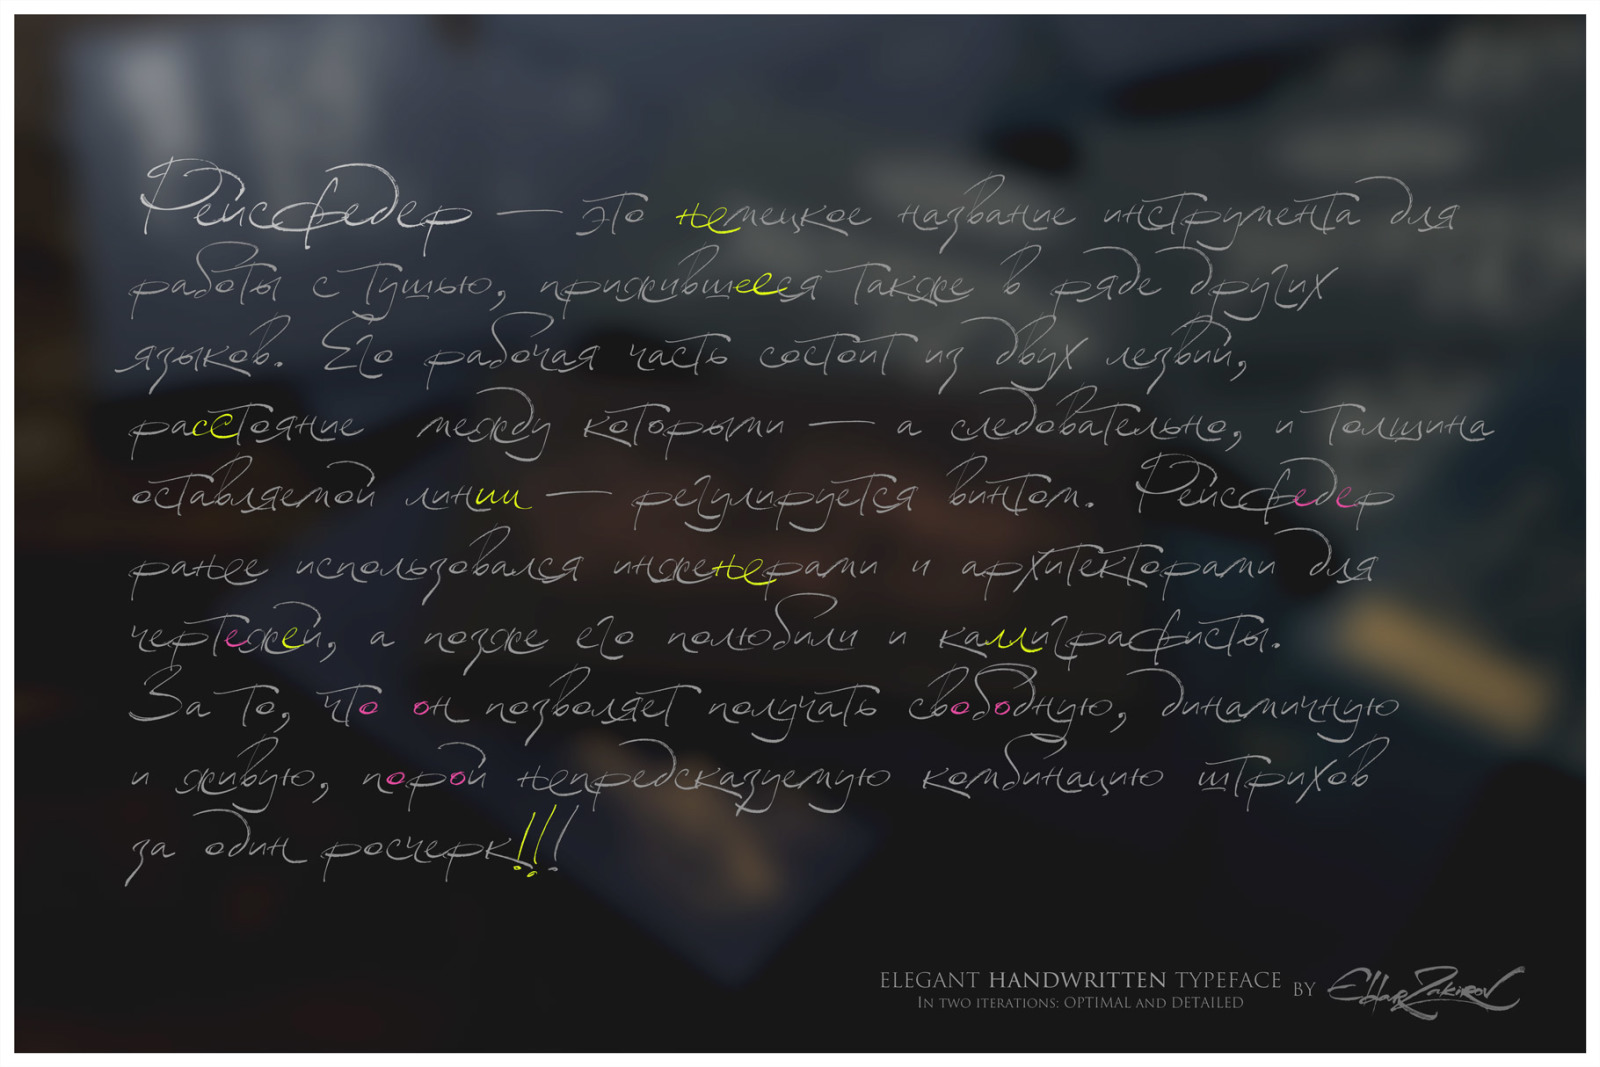 Рейсфедер — это немецкое название инструмента для
работы с тушью, прижившееся также в ряде других
языков. Его рабочая часть состоит из двух лезвий,
расстояние между которыми — а следовательно, и толщина
оставляемой линии — регулируется винтом. Рейсфедер
ранее использовался инженерами и архитекторами для
чертежей, а позже его полюбили и каллиграфисты.
За то, что он позволяет получать свободную, динамичную
и живую, порой непредсказуемую комбинацию штрихов
за один росчерк!!!
ELEGANT HANDWRITTEN TYPEFACE BY Elbar Zakirov
IN TWO ITERATIONS: OPTIMAL AND DETAILED